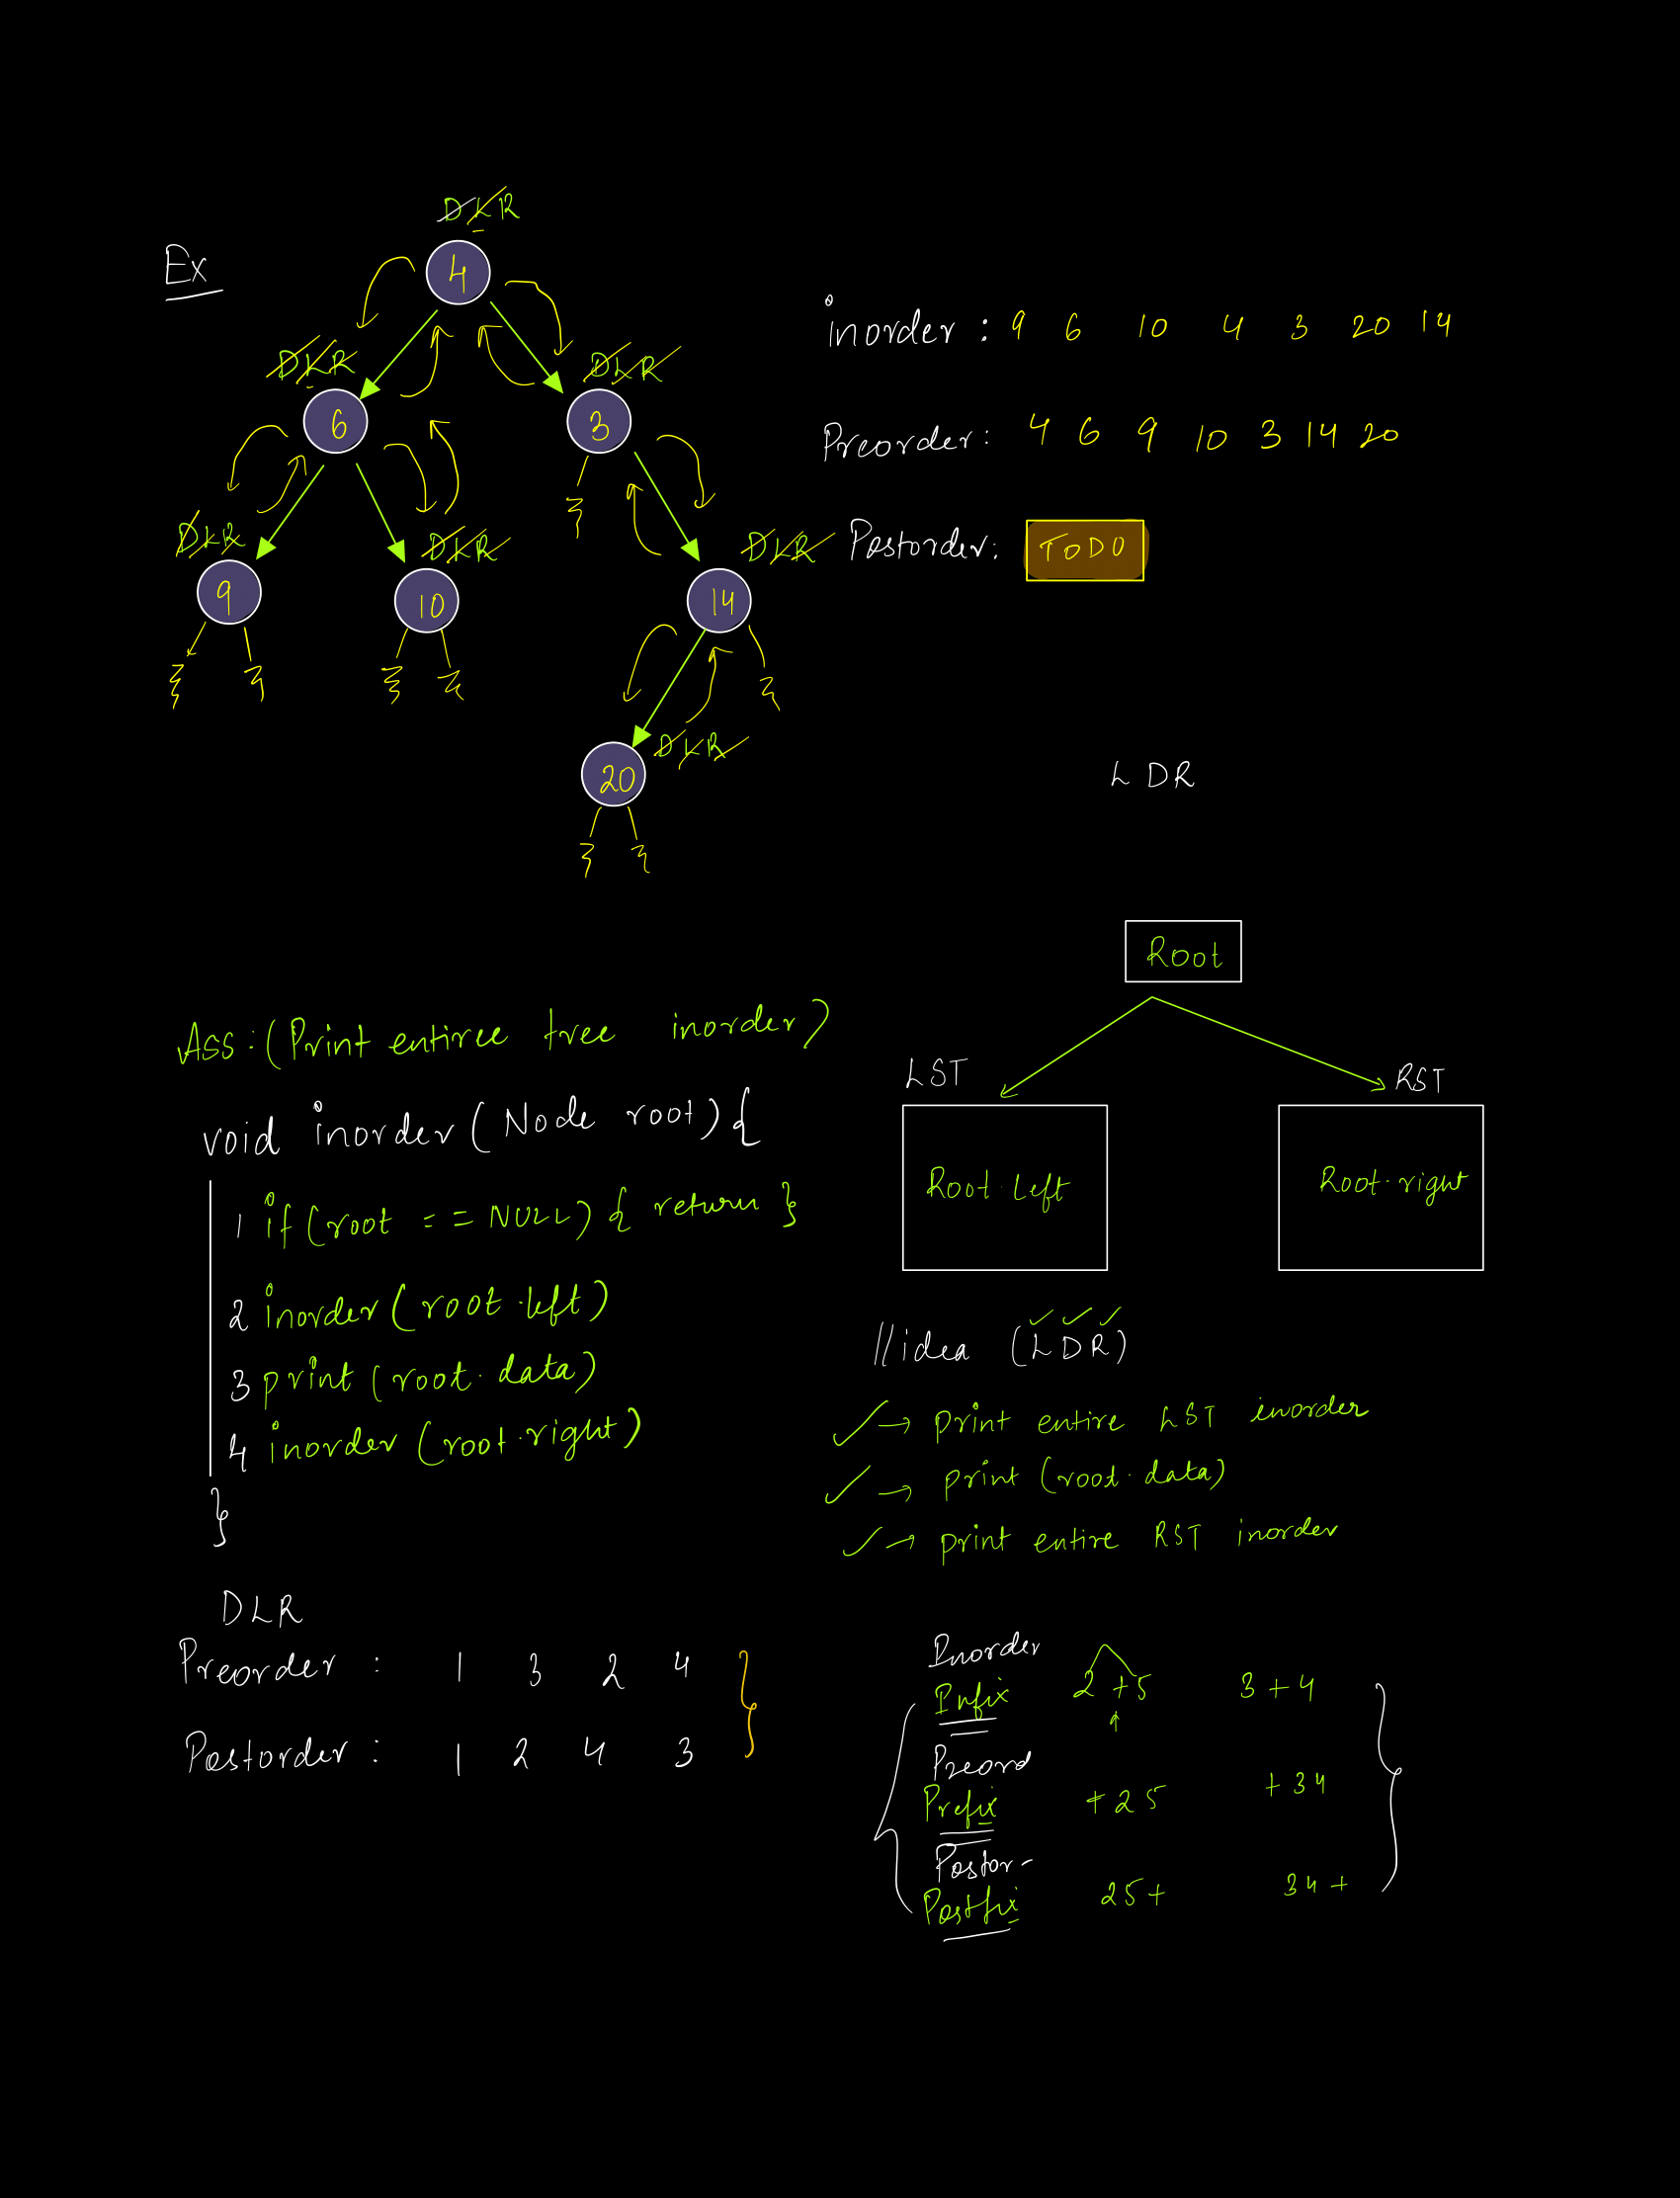 Ex
DLR
4
DLR
DLR
6
3
DLR
DLR
DLR
9
10
14
DLR
20
inorder : 9 6 10 4 3 20 14
Preorder: 4 6 9 10 3 14 20
Postorder: TODO
LDR
Root
LST
RST
Root.left
Root.right
Ass: (Print entiree tree inorder)
void inorder(Node root){
1 if(root == NULL){ return }
2 inorder(root.left)
3 print(root.data)
4 inorder(root.right)
}
//idea (LDR)
→ print entire LST inorder
→ print (root.data)
→ print entire RST inorder
DLR
Preorder : 1 3 2 4
Postorder : 1 2 4 3
Inorder
Infix 2+5 3+4
Preord
Prefix +25 +34
Postor-
Postfix 25+ 34+